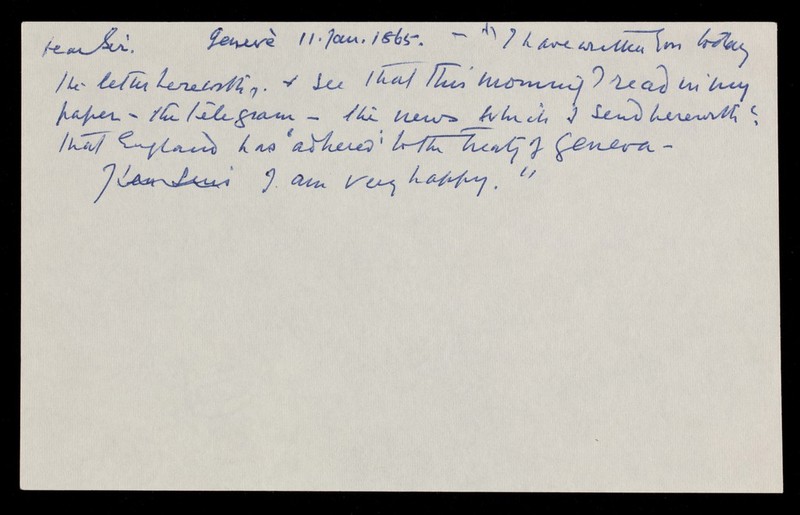 Dear Sir. Genevè 11. Jan. 1865. - "I have written you today
the letter herewith, & see that this morning I read in my
paper - the telegram - the news which I send herewith:
that England has 'adhered' to the Treaty of Geneva -
I am very happy."